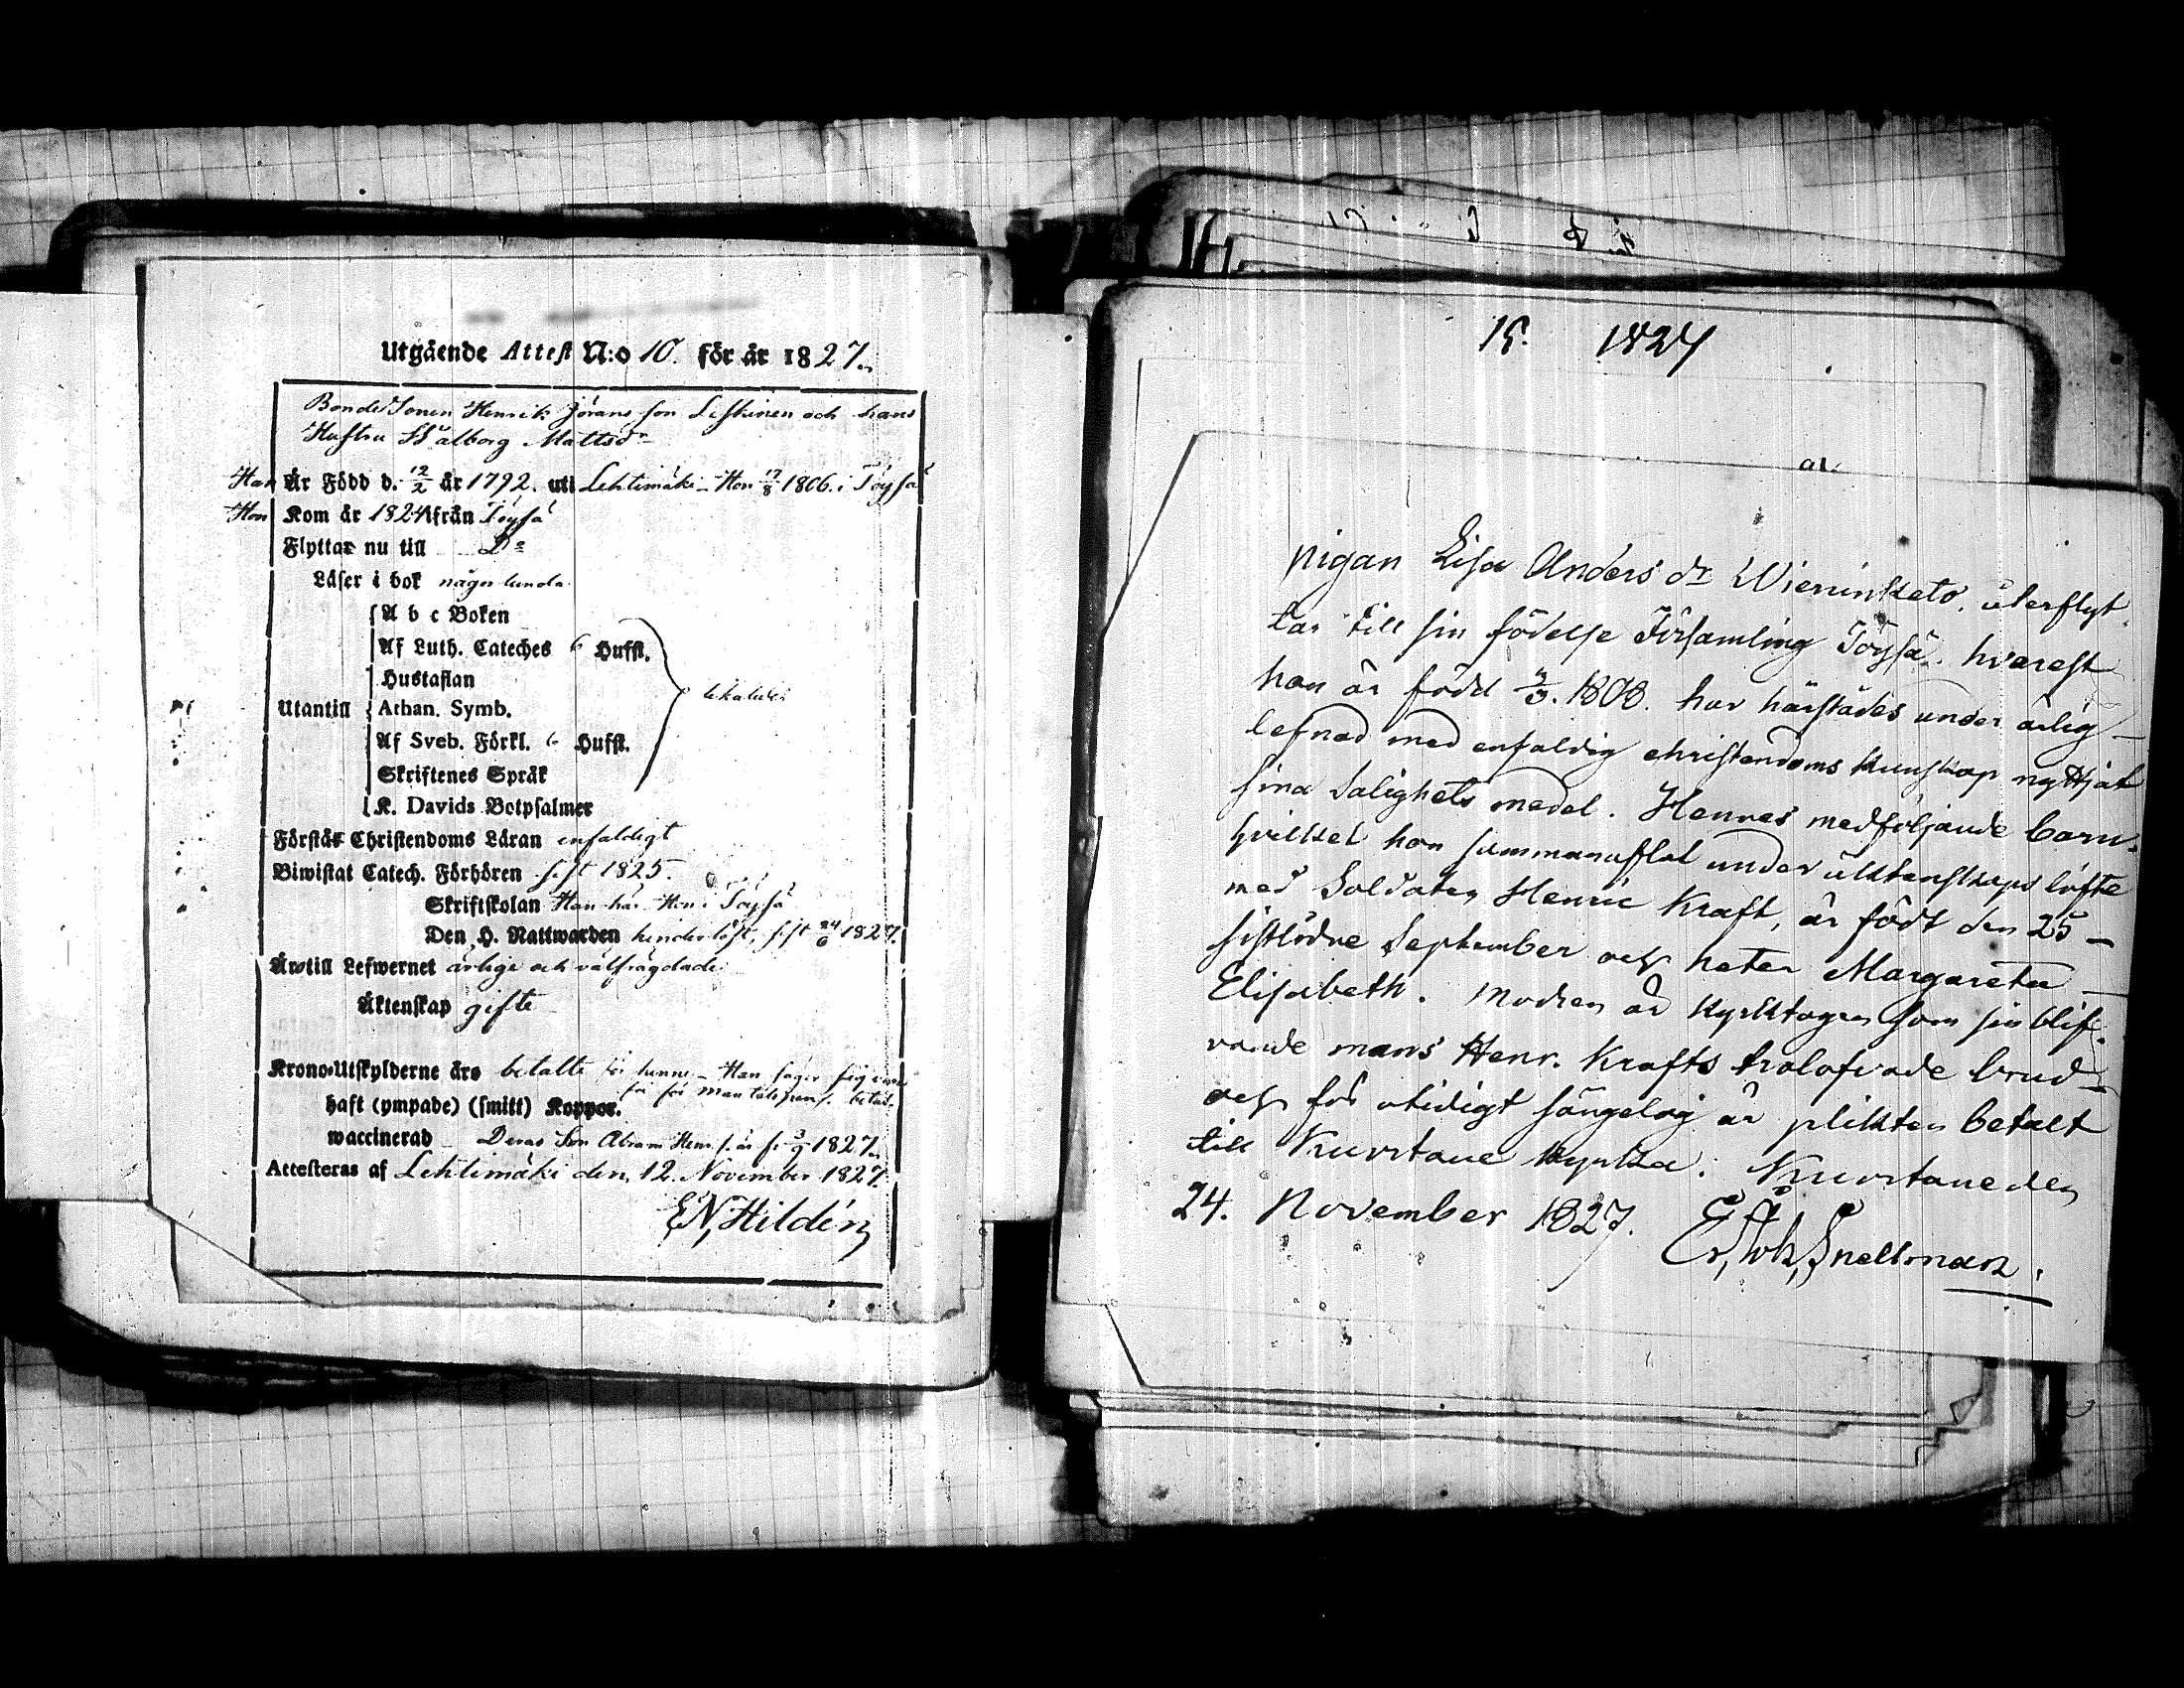 Utgående Attest N:o 10. för år 1827.
BondeSonen Henrik Jörans son Leskinen och hans
Hustru Wålborg Mattsdr
Han Är Född d. 12/2 år 1792. uti Lehtimäki - Hon 17/8 1806. i Töysä
Hon Kom år 1824 ifrån Töysä
Flyttar nu till Do
Läser i bok någorlunda
A b c Boken
Af Luth. Cateches 6 Hufst.
Hustaflan
Utantill Athan. Symb.
Af Sveb. Förkl. 6 Hufst.
Skriftenes Språk
K. Davids Botpsalmer
Förstår Christendoms Läran enfaldigt
Biwistat Catech. Förhören sist 1825.
Skriftskolan Han här Hon i Töysä
Den H. Nattwarden hinderlöst, sist 24/6 1827.
Äro till Lefwernet ärlige och välfrägdade
Äktenskap gifte
Krono-Utskylderne äro betalte för henne - Han säger sig vara
fri för mantalspen. betal.
haft (ympade) (smitt) Koppor.
waccinerad - Deras Son Abram Henr. s. är f. 3/9 1827.
Attesteras af Lehtimäki den 12. November 1827.
E N, Hildén
15. 1827
pigan Lisa Anders dr Wieninketo, återflyt-
tar till sin födelse Församling Töysä, hvarest
hon är född 4/3. 1808. har härstädes under ärlig
lefnad med enfaldig christendoms kunskap nyttjat
sina Salighets medel. Hennes medföljande barn,
hvilket hon sammanaflat under äktenskaps löfte
med Soldaten Henric Kraft, är födt den 25
sistlidne September och heter Margareta
Elisabeth. Modren är kyrktagen som sin blif-
vande mans Henr. Krafts trolofvade brud
och för otidigt sängelag är plikten betalt
till Kuortane kyrka. Kuortane den
24. November 1827.
Er, Joh, Snellman.